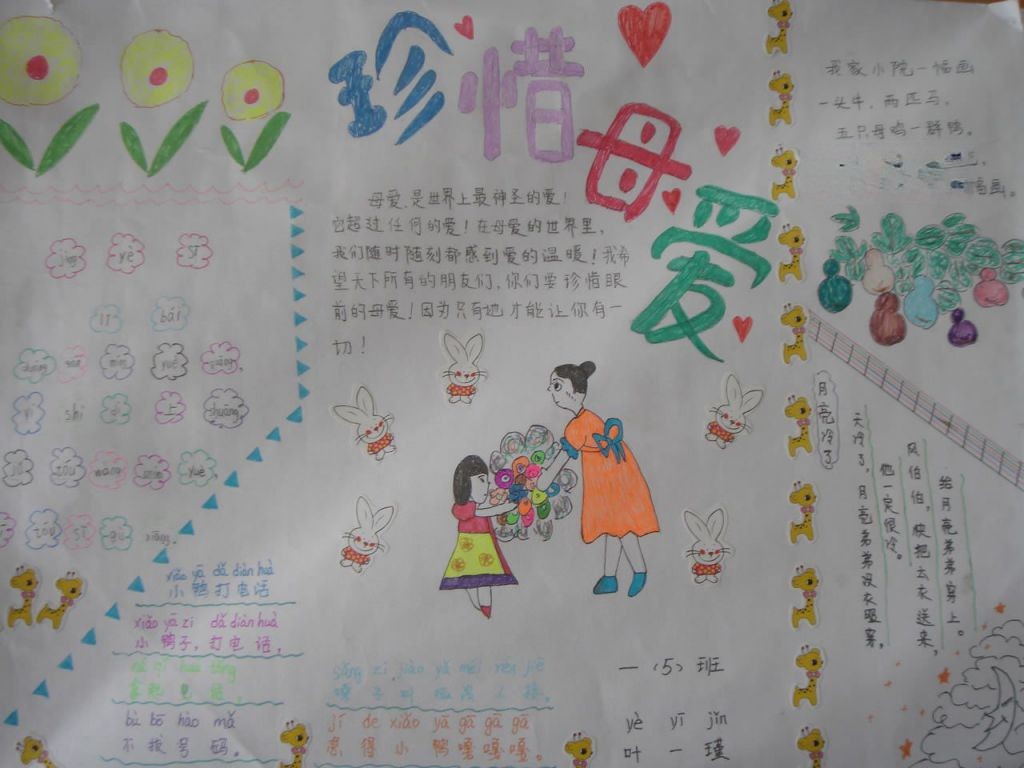 珍惜母爱
母爱,是世界上最神圣的爱!
它超过任何的爱!在母爱的世界里,
我们随时随刻都感到爱的温暖!我希
望天下所有的朋友们,你们要珍惜眼
前的母爱!因为只有她才能让你有一
切!
jìng yè sī
lǐ bái
chuáng qián míng yuè guāng,
yí shì dì shàng shuāng
tóu wàng míng yuè,
tóu sī gù xiāng.
xiǎo yā dǎ diàn huà
小鸭打电话
xiǎo yā zi dǎ diàn huà
小鸭子,打电话,
ná qǐ huà tǒng
拿起
bù bō hào mǎ
不拔号码。
sǎng zi jiào yǎ méi rén jiē
嗓子叫哑没人接,
jí de xiǎo yā gā gā gā
急得小鸭嘎嘎嘎。
一(5)班
yè yī jǐn
叶一瑾
我家小院一幅画
一头牛,两匹马,
五只母鸡一群鸭。
幅画。
月亮冷了
天冷了,月亮弟弟没衣哑寨,
他一定很冷。
风伯伯,快把去衣送来,
给月亮弟弟穿上。